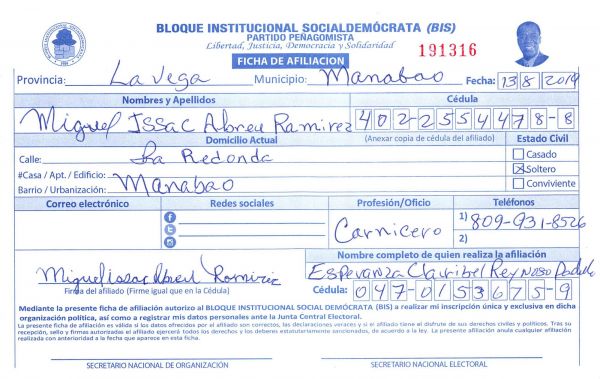 BLOQUE INSTITUCIONAL SOCIALDEMÓCRATA (BIS)
PARTIDO PEÑAGOMISTA
Libertad, Justicia, Democracia y Solidaridad
191316
FICHA DE AFILIACION
Provincia: La Vega Municipio: Manabao Fecha: 13 8 2019
Nombres y Apellidos Cédula
Miguel Issac Abreu Ramirez 402-2554478-8
Domicilio Actual (Anexar copia de cédula del afiliado) Estado Civil
Calle: La Redonda Casado
#Casa / Apt. / Edificio: Soltero
Barrio / Urbanización: Manabao Conviviente
Correo electrónico Redes sociales Profesión/Oficio Teléfonos
Carnicero 1) 809-931-8526
2)
Nombre completo de quien realiza la afiliación
Miguel issac Abreu Ramirez Esperanza Claribel Reynoso
Firma del afiliado (Firme igual que en la Cédula) Cédula: 047-0153675-9
Mediante la presente ficha de afiliación autorizo al BLOQUE INSTITUCIONAL SOCIAL DEMÓCRATA (BIS) a realizar mi inscripción única y exclusiva en dicha
organización política, así como a registrar mis datos personales ante la Junta Central Electoral.
La presente ficha de afiliación es válida si los datos ofrecidos por el afiliado son correctos, las declaraciones veraces y si el afiliado tiene el disfrute de sus derechos civiles y políticos. Tras su
recepción, sello y firmas autorizadas el afiliado ejercerá todos los derechos y los deberes estatutariamente sancionados, de acuerdo a la ley. La presente afiliación anula cualquier afiliación
realizada con anterioridad a la fecha que aparece en esta ficha.
SECRETARIO NACIONAL DE ORGANIZACIÓN SECRETARIO NACIONAL ELECTORAL